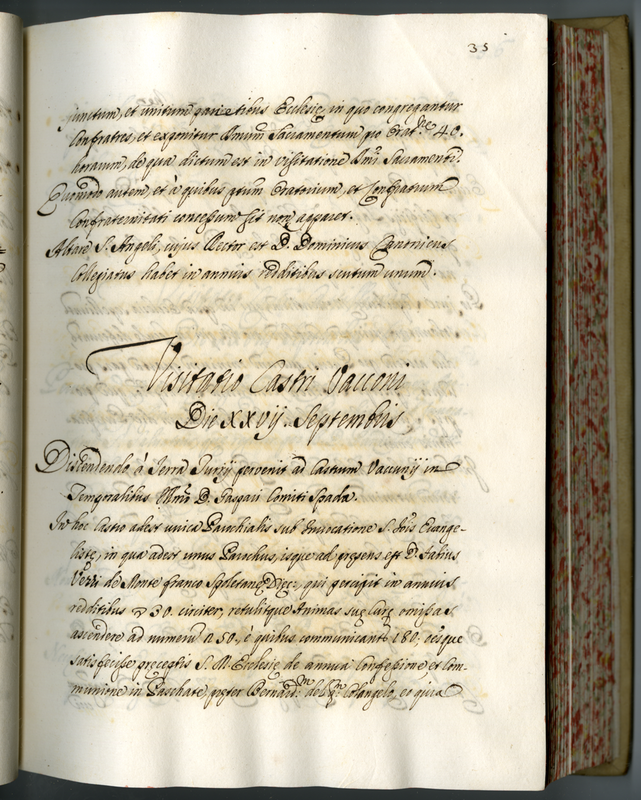 35
junctum, et unitum parietibus Ecclesiæ, in quo congregantur
Confratres, et exponitur Smum Sacramentum pro Orat.ne 40.
horarum, de qua dictum est in visitatione Smi Sacramenti.
Quomodo autem, et à quibus ptum Oratorium, et Confratrum
Confraternitati concessum sit non apparet.
Altare S. Angeli, cujus Rector est D. Dominicus Canonicus
Collegiatus habet in annuis redditibus scutum unum.
Visitatio Castri Vacconi
Die XXVIJ. Septembris
Discendendo à Terra Turrij pervenit ad Castrum Vaccunij in
Temporalibus Illmi D. Gaspari Comiti Spada.
In hoc Castro adest unica Parochialis sub Invocatione S. Jois Evange-
listæ, in qua adest unus Parochus, isque ad præsens est D. Fabius
de Monte franco Spoletanæ Diæc:, qui percipit in annuis
redditibus 30. circiter, retulitque Animas suæ Curæ omissas
ascendere ad numerum 250., è quibus communicant 180, eosque
satisfecisse præceptis S. M. Ecclesiæ de annua Confessione, et Com-
munione in Paschate, præter Bernard.m del q.m Colangelo, eo quia